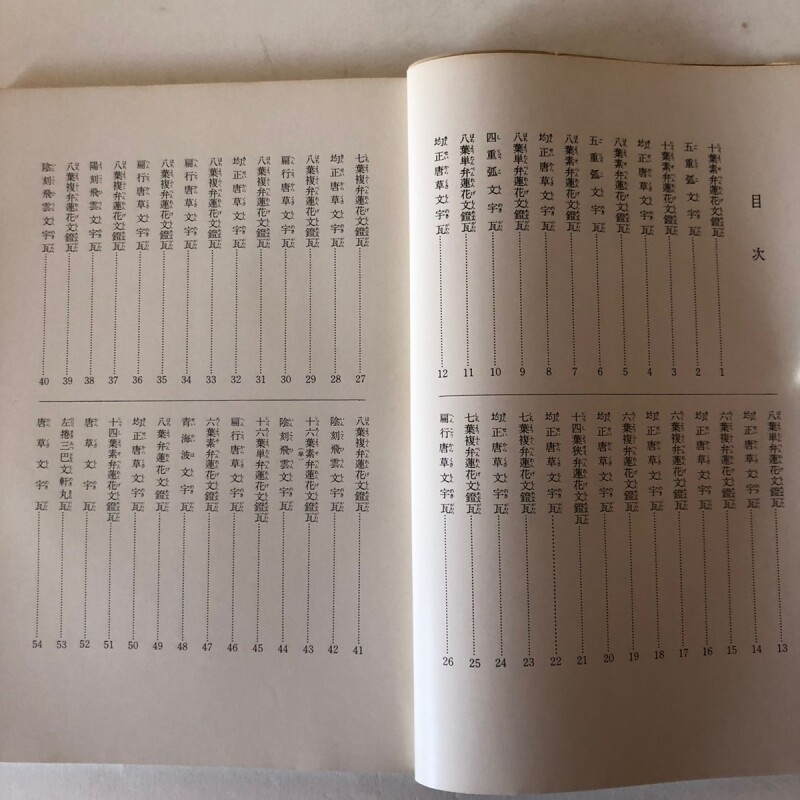 目次
十葉素弁蓮花文鐙瓦 1
五重弧文字瓦 2
十葉素弁蓮花文鐙瓦 3
均正唐草文字瓦 4
八葉素弁蓮花文鐙瓦 5
五重弧文字瓦 6
八葉素弁蓮花文鐙瓦 7
均正唐草文字瓦 8
八葉単弁蓮花文鐙瓦 9
四重弧文字瓦 10
八葉単弁蓮花文鐙瓦 11
均正唐草文字瓦 12
八葉単弁蓮花文鐙瓦 13
均正唐草文字瓦 14
六葉複弁蓮花文鐙瓦 15
均正唐草文字瓦 16
六葉複弁蓮花文鐙瓦 17
均正唐草文字瓦 18
六葉複弁蓮花文鐙瓦 19
均正唐草文字瓦 20
十四葉狭弁蓮花文鐙瓦 21
均正唐草文字瓦 22
七葉複弁蓮花文鐙瓦 23
均正唐草文字瓦 24
七葉複弁蓮花文鐙瓦 25
扁行唐草文字瓦 26
七葉複弁蓮花文鐙瓦 27
均正唐草文字瓦 28
八葉複弁蓮花文鐙瓦 29
扁行唐草文字瓦 30
八葉複弁蓮花文鐙瓦 31
均正唐草文字瓦 32
八葉複弁蓮花文鐙瓦 33
扁行唐草文字瓦 34
八葉複弁蓮花文鐙瓦 35
扁行唐草文字瓦 36
八葉複弁蓮花文鐙瓦 37
陽刻飛雲文字瓦 38
八葉複弁蓮花文鐙瓦 39
陰刻飛雲文字瓦 40
八葉複弁蓮花文鐙瓦 41
陰刻飛雲文字瓦 42
十六葉素弁蓮花文鐙瓦 43
陰刻飛雲文字瓦 44
十六葉単弁蓮花文鐙瓦 45
扁行唐草文字瓦 46
六葉素弁蓮花文鐙瓦 47
青海波文字瓦 48
八葉弁蓮花文鐙瓦 49
均正唐草文字瓦 50
十四葉素弁蓮花文鐙瓦 51
唐草文字瓦 52
左捲三巴文軒丸瓦 53
唐草文字瓦 54